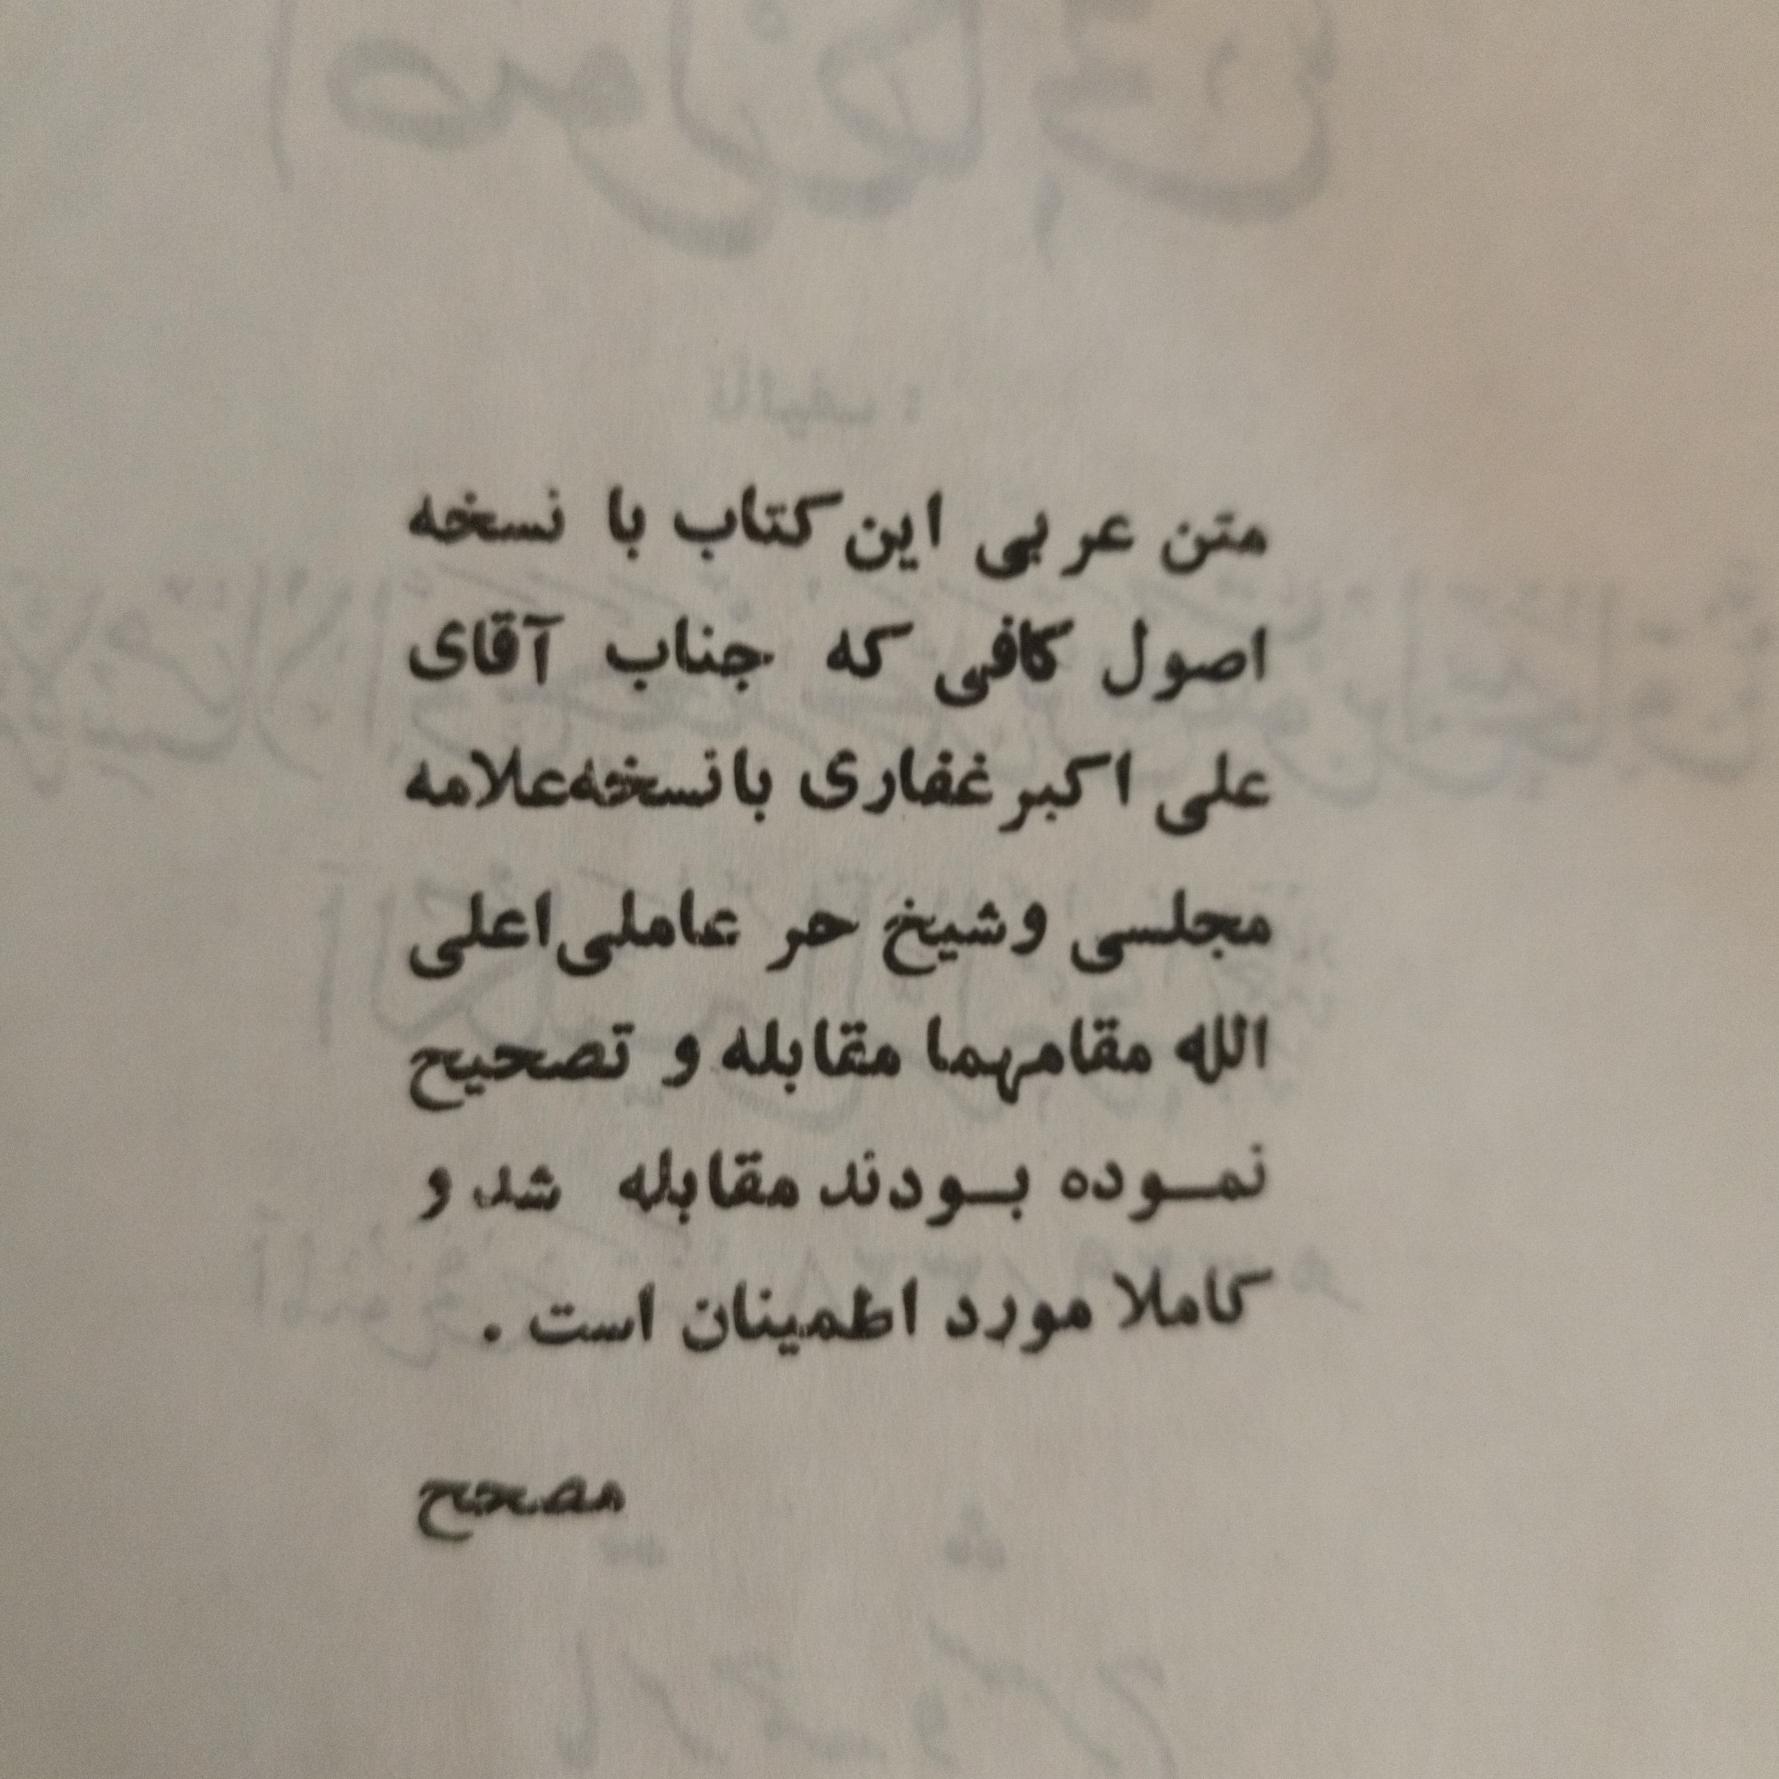 متن عربی این کتاب با نسخه
اصول کافی که جناب آقای
علی اکبر غفاری با نسخه علامه
مجلسی و شیخ حر عاملی اعلی
الله مقامهما مقابله و تصحیح
نموده بودند مقابله شد و
کاملا مورد اطمینان است .
مصحح